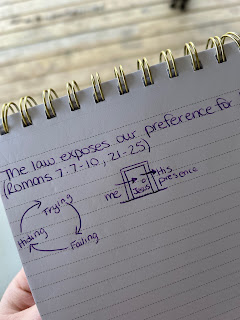 The law exposes our preference for
(Romans 7:7-10, 21-25)
Trying
Failing
Hiding
me
Jesus
His
presence